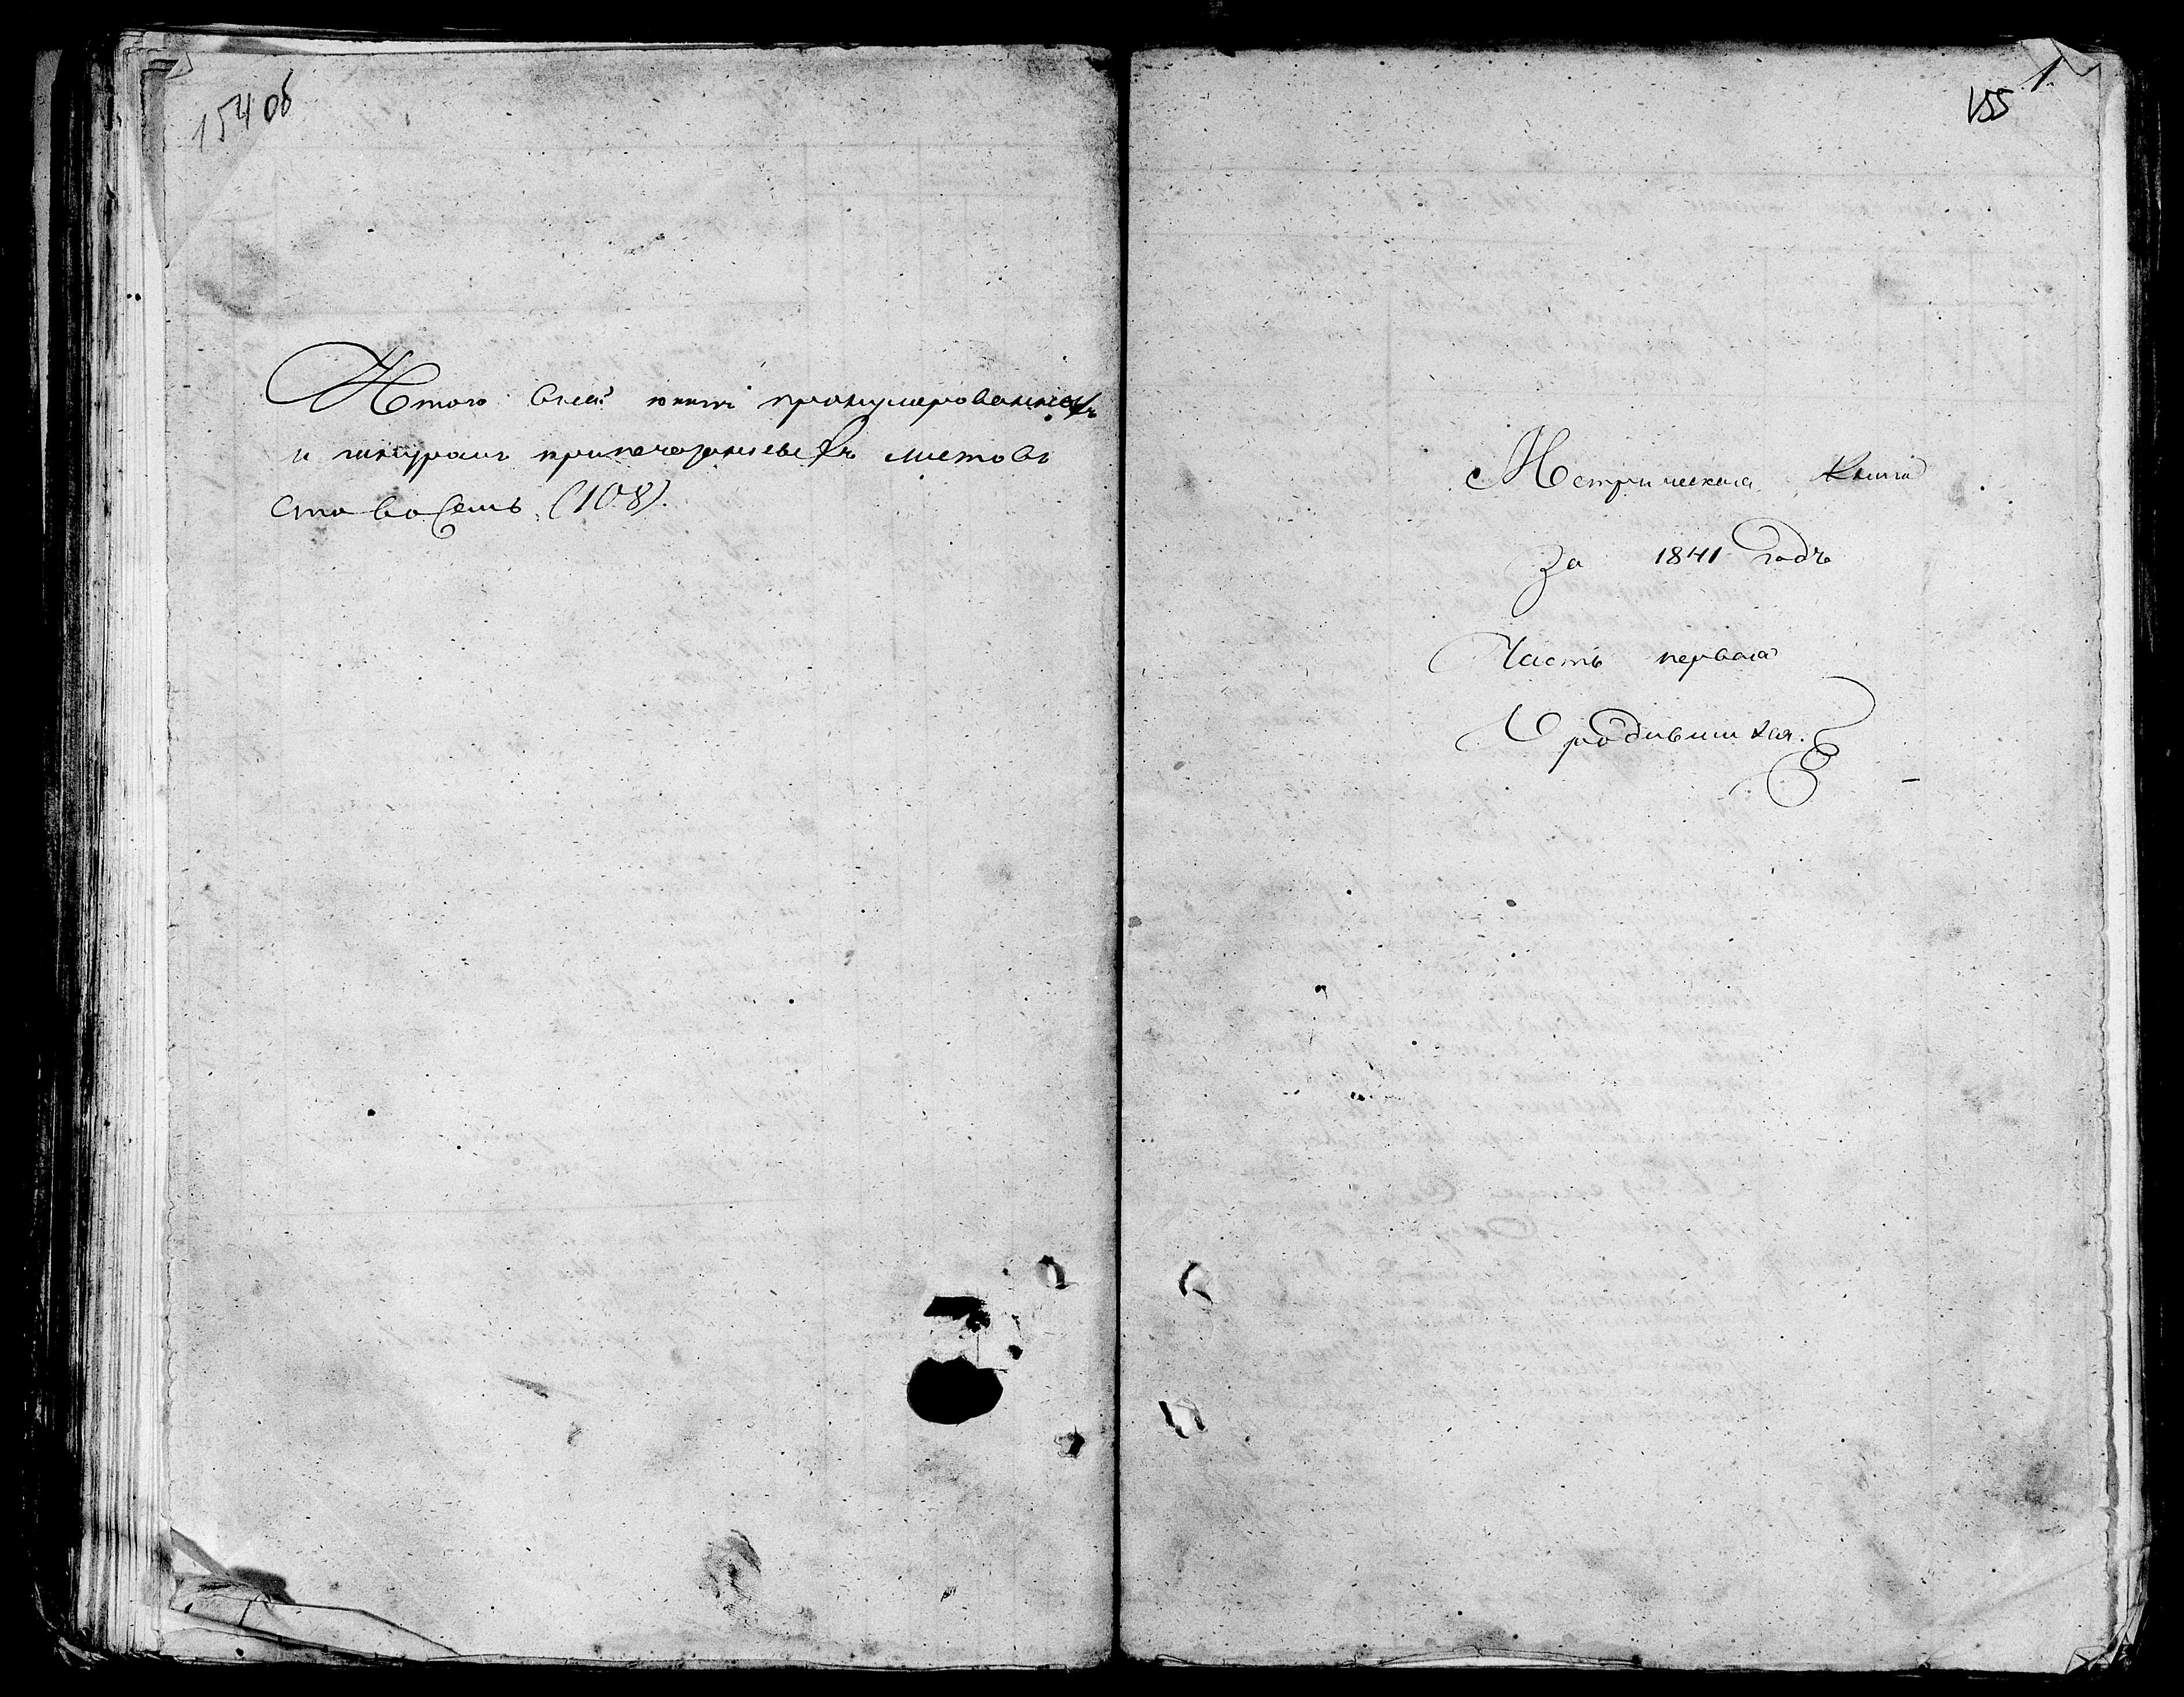 154 об
Итого в сей книги пронумерованныхъ
и шнуромъ припечатанныхъ листовъ
сто восемь (108).
155
1
Метрическая книга
за 1841 годъ
Часть первая
О родившихся.